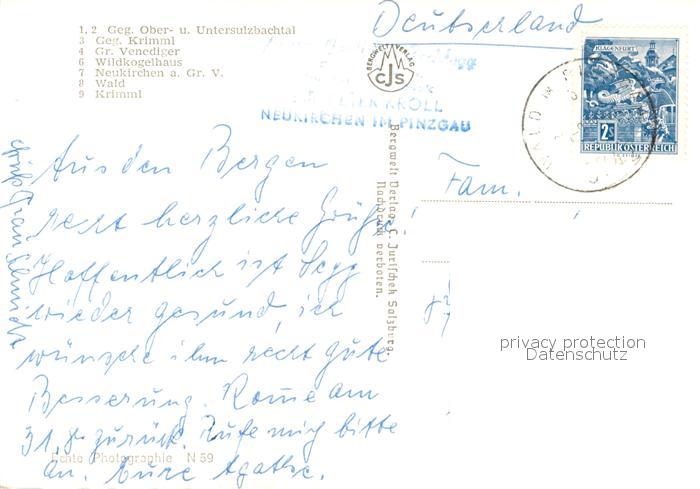 1, 2 Geg. Ober- u. Untersulzbachtal
3 Geg. Krimml
4 Gr. Venediger
6 Wildkogelhaus
7 Neukirchen a. Gr. V.
8 Wald
9 Krimml
Deutschland
BERGWELT VERLAG
CJS
KLAGENFURT
2S
REPUBLIK ÖSTERREICH
WALD IM
KROLL
NEUKIRCHEN IM PINZGAU
Bergwelt Verlag C. Jurischek Salzburg.
Nachdruck verboten.
Fam.
Aus den Bergen
recht herzliche Grüße!
Hoffentlich ist Sepp
wieder gesund, ich
wünsche ihm recht gute
Besserung. Kome am
31.8. zurück. Rufe mich bitte
an. Eure Agathe.
Echte Photographie N 59
privacy protection
Datenschutz